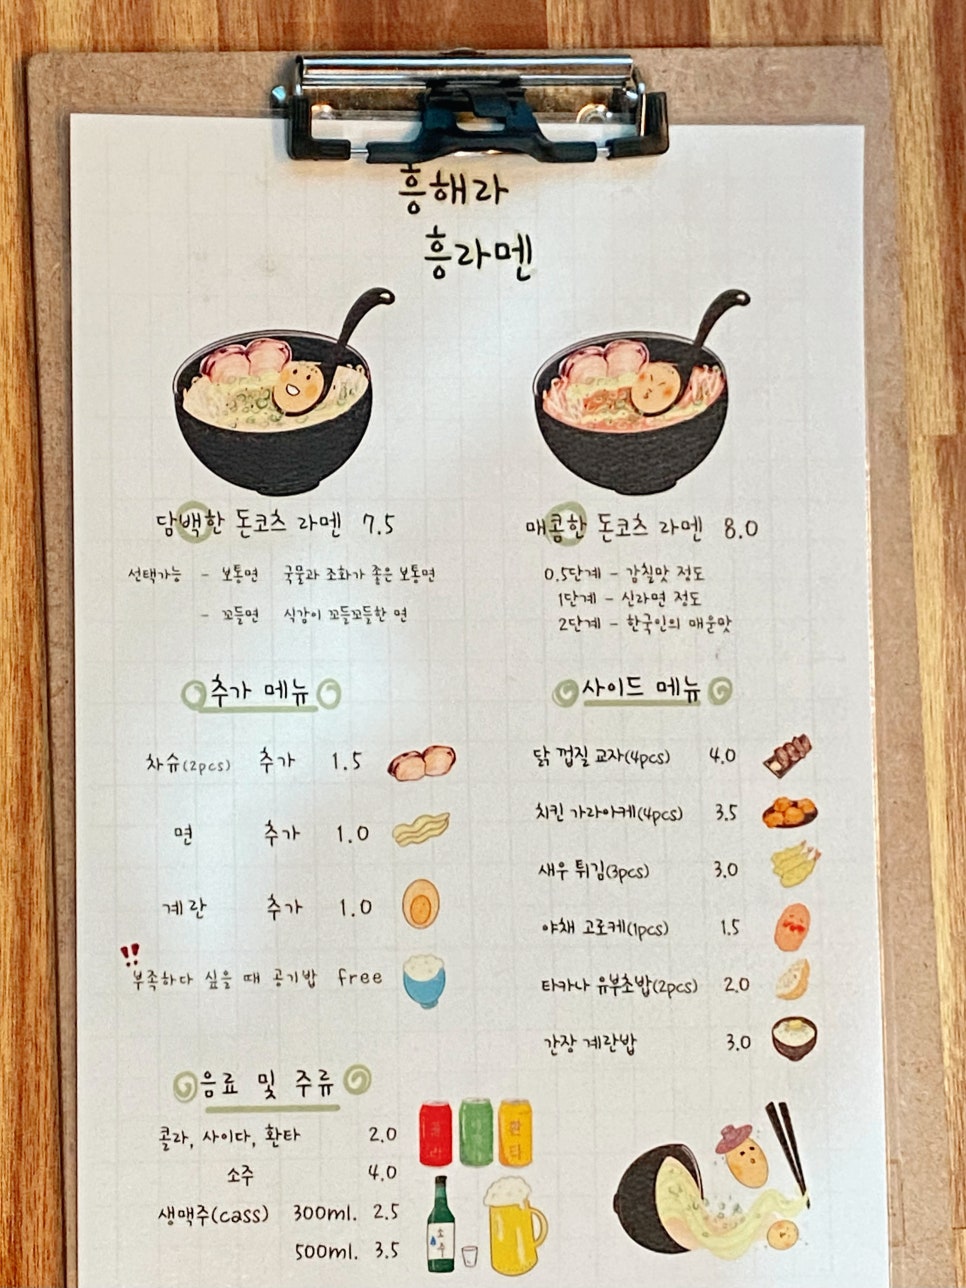 흥해라
흥라멘
담백한 돈코츠 라멘 7.5
선택가능 - 보통면 국물과 조화가 좋은 보통면
- 꼬들면 식감이 꼬들꼬들한 면
매콤한 돈코츠 라멘 8.0
0.5단계 - 감칠맛 정도
1단계 - 신라면 정도
2단계 - 한국인의 매운맛
추가 메뉴
차슈(2pcs) 추가 1.5
면 추가 1.0
계란 추가 1.0
!! 부족하다 싶을 때 공기밥 free
사이드 메뉴
닭 껍질 교자(4pcs) 4.0
치킨 가라아케(4pcs) 3.5
새우 튀김(3pcs) 3.0
야채 고로케(1pcs) 1.5
타카나 유부초밥(2pcs) 2.0
간장 계란밥 3.0
음료 및 주류
콜라, 사이다, 환타 2.0
소주 4.0
생맥주(cass) 300ml. 2.5
500ml. 3.5
환타
소주